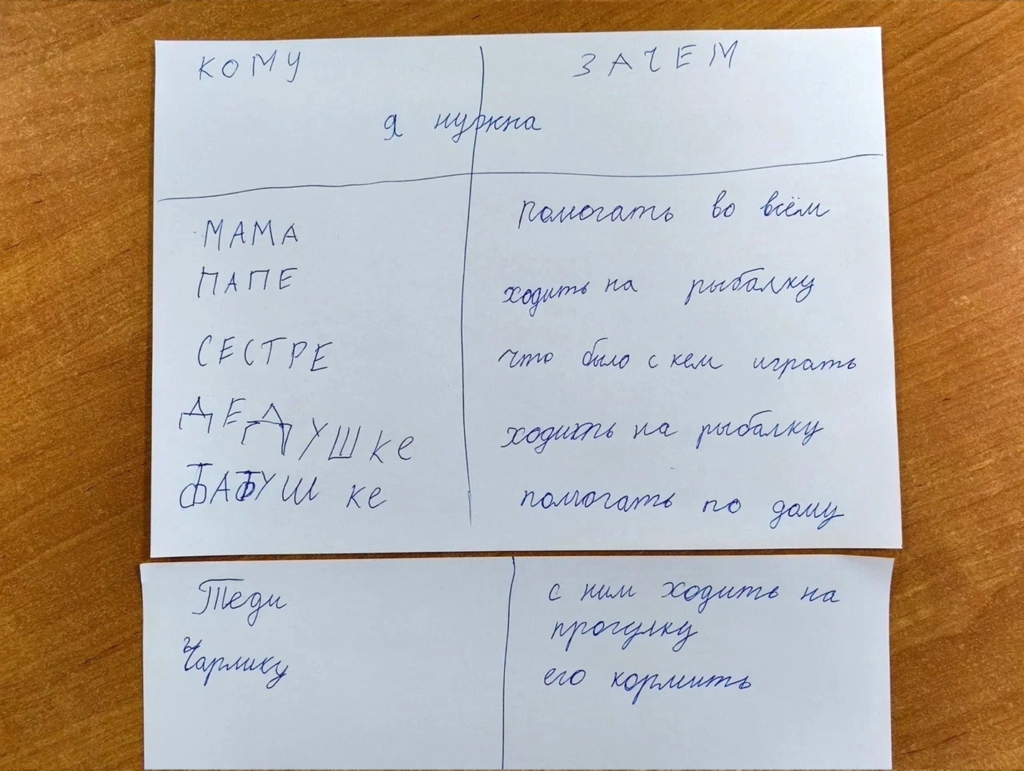 КОМУ ЗАЧЕМ
я нужна
МАМА помогать во всём
ПАПЕ ходить на рыбалку
СЕСТРЕ что было с кем играть
ДЕДУШКе ходить на рыбалку
БАБУШке помогать по дому
Теди с ним ходить на
прогулку
Чарлику его кормить